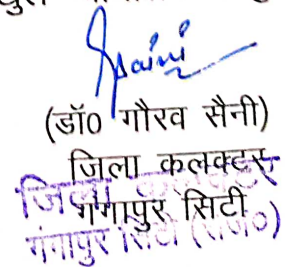 Saini
(डॉ0 गौरव सैनी)
जिला कलक्टर
गंगापुर सिटी
जिला कलक्टर
गंगापुर सिटी (राज०)